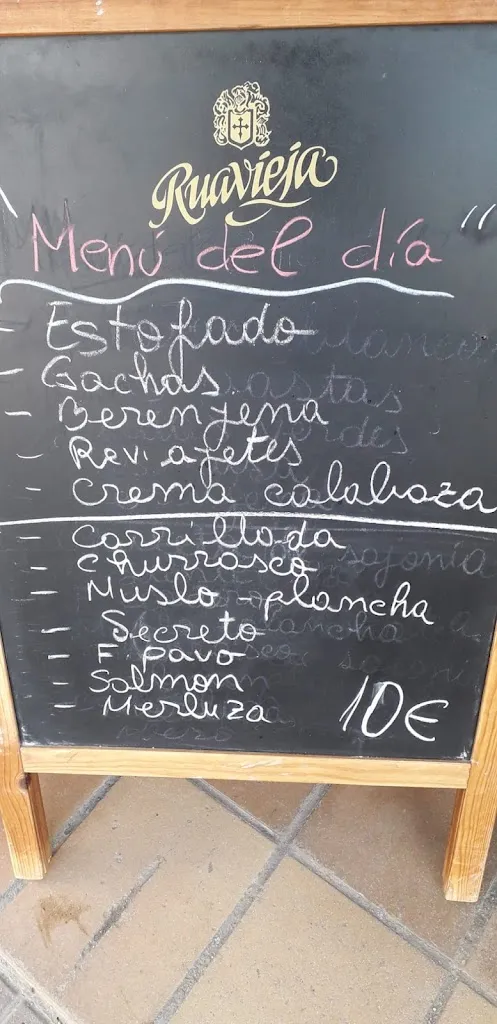 Ruavieja
"Menú del día"
- Estofado
- Gachas
- Berenjena
- Rev. ajetes
- Crema calabaza
- Carrillada
- Churrasco
- Muslo - plancha
- Secreto
- F pavo
- Salmon
- Merluza
10€